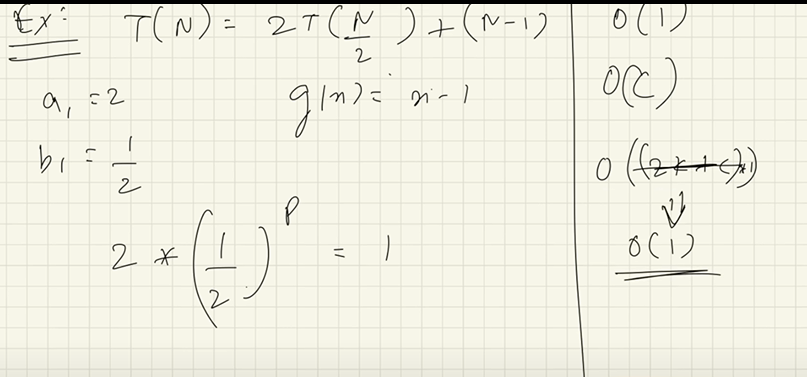 Ex: T(N) = 2T(N/2) + (N-1)
a₁ = 2
g(n) = n - 1
b₁ = 1/2
2 * (1/2)^P = 1
O(1)
O(C)
O((2x+c)*1)
O(1)